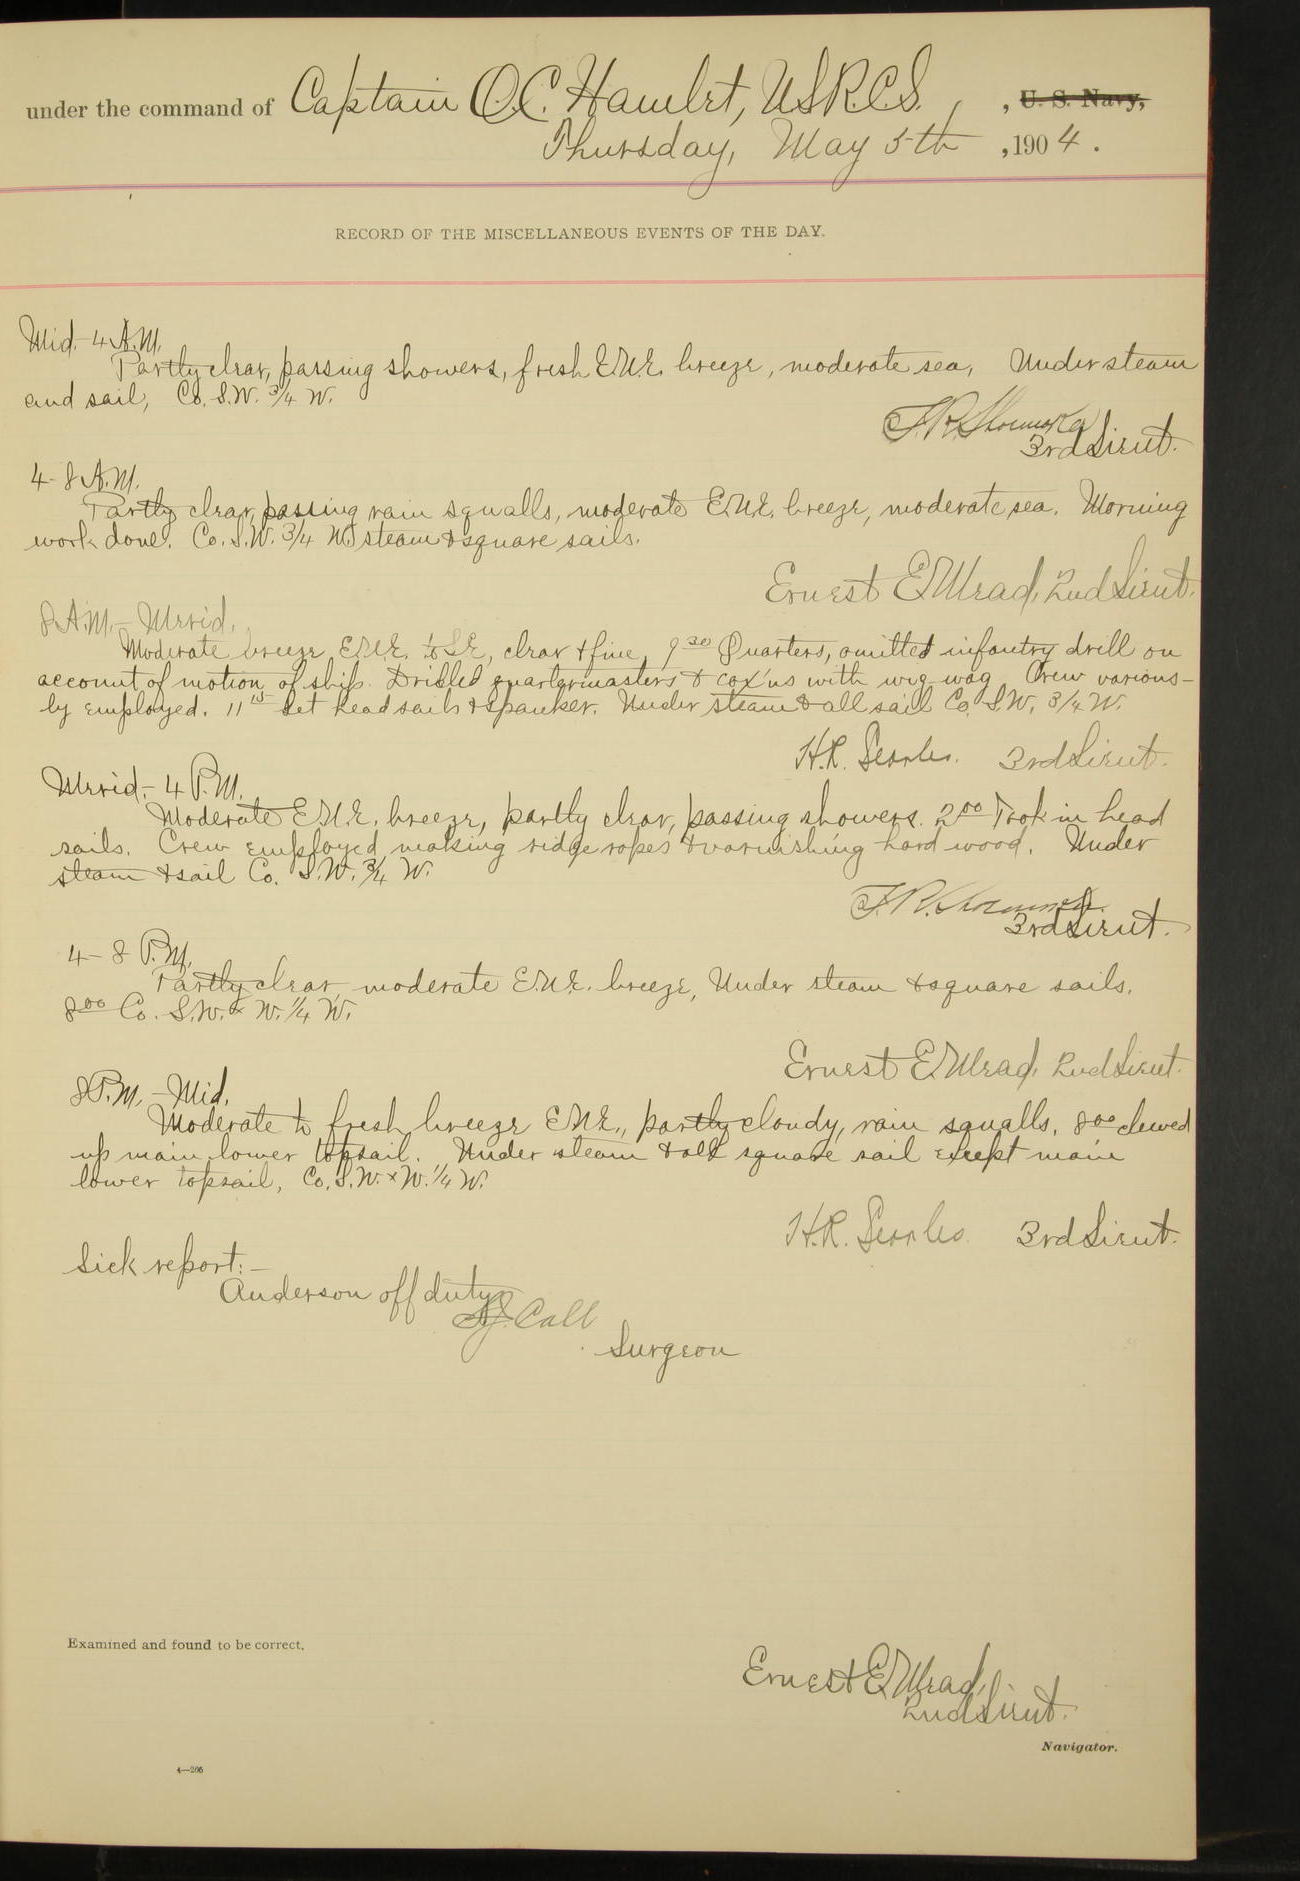 under the command of Captain O.C. Hamlet, U.S.R.C.S. , , U. S. Navy,
Thursday, May 5th , 1904.
RECORD OF THE MISCELLANEOUS EVENTS OF THE DAY.
Mid.- 4 A.M.
Partly clear, passing showers, fresh E.N.E. breeze, moderate sea, Under steam
and sail, Co. S.W. 3/4 W.
3rd Lieut.
4- 8 A.M.
Partly clear, passing rain squalls, moderate E.N.E. breeze, moderate sea. Morning
work done. Co. S.W. 3/4 W. steam & square sails.
Ernest E. Mead, 2nd Lieut.
8 A.M.- Merid.
Moderate breeze E.N.E. to S.E, clear & fine, 9 30 Quarters, omitted infantry drill on
account of motion of ship. Drilled quartermasters & cox'ns with wig wag Crew various-
ly employed. 11 15 Set headsails & spanker. Under steam & all sail Co. S.W. 3/4 W.
H.R. Searles. 3rd Lieut.
Merid.- 4 P.M.
Moderate E.N.E. breeze, partly clear, passing showers. 2 00 Took in head
sails. Crew employed making ridge ropes & varnishing hard wood. Under
steam & sail Co. S.W. 3/4 W.
3rd Lieut.
4- 8 P.M.
Partly clear moderate E.N.E. breeze, Under steam & square sails.
8 00 Co. S.W. x W. 1/4 W.
Ernest E. Mead, 2nd Lieut.
8 P.M. - Mid.
Moderate to fresh breeze E.N.E., partly cloudy, rain squalls. 8 00 clewed
up main lower topsail. Under steam & all square sail except main
lower topsail, Co. S.W. x W. 1/4 W.
H.R. Searles 3rd Lieut.
Sick report:-
Anderson off duty
S.J. Call
Surgeon
Examined and found to be correct.
Ernest E. Mead,
2nd Lieut.
Navigator.
4—206